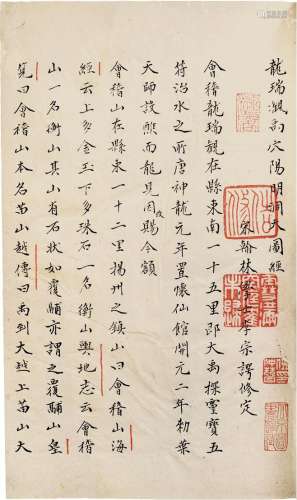 龍瑞觀禹穴陽明洞天圖經
宋翰林學士李宗諤修定
會稽龍瑞觀在縣東南一十五里即大禹探靈寶五
符治水之所唐神龍元年置懷仙館開元二年勅葉
天師設醮而龍見因改賜今額
會稽山在縣東一十二里揚州之鎮山曰會稽山海
經云上多金玉下多珠石一名衡山輿地志云會稽
山一名衡山其山有石狀如覆鬴亦謂之覆鬴山皇
覽曰會稽山本名苗山越傳曰禹到大越上苗山大